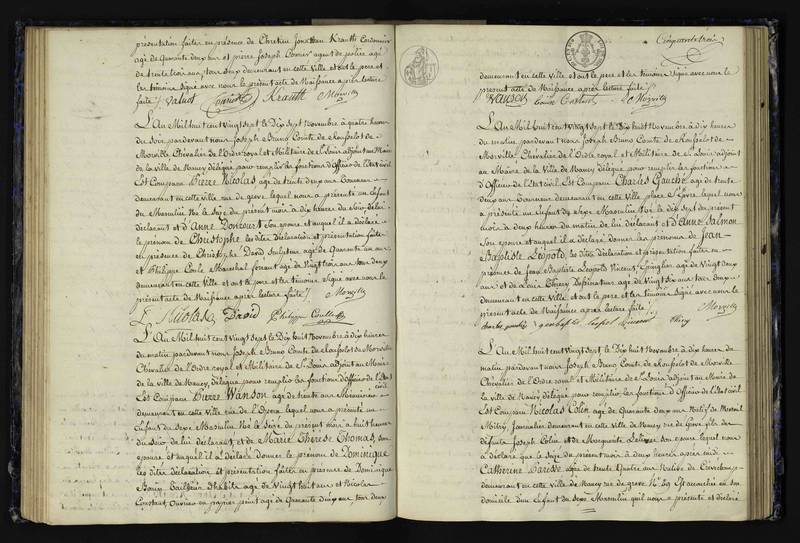 présentation faites en présence de Chretien Jonathan Krauth Cordonnier
agé de Quarante deux ans et pierre Joseph agent de police agé
de trente trois ans, tous deux demeurant en cette Ville et ont le pere et
les témoins Signé avec nous le présent acte de Naissance après lecture
faite /. Krauth Morville
L'An Mil huit cent vingt sept le Dix Sept Novembre à quatre heures
du Soir, pardevant nous Joseph Bruno Comte de Rousselot de
Morville Chevalier de l'Ordre royal et Militaire de St Louis adjoint au Maire
de la Ville de Nancy délégué pour remplir les fonctions d'Officier de l'Etat civil
Est Comparu Pierre Nicolas agé de trente deux ans
demeurant en cette Ville rue de greve lequel nous a présenté un Enfant
du Sexe Masculin Né le Seize du présent mois à dix heures du Soir de lui
déclarant et d'Anne Doncourt Son épouse et auquel il a déclaré
le prénom de Christophe les dites Déclaration et présentation faites
en présence de Christophe David Sculpteur agé de Quarante un ans
et Philippe Marechal ferrant agé de Vingt trois ans tous deux
demeurant en cette Ville et ont le pere et les témoins Signé avec nous le
présent acte de Naissance après lecture faite /. Morville
Nicolas David Philippe
L'An Mil huit cent vingt Sept le Dix huit Novembre à dix heures
du matin pardevant nous Joseph Bruno Comte de Rousselot de Morville
Chevalier de l'Ordre royal et Militaire de St Louis adjoint au Maire
de la Ville de Nancy, délégué pour remplir les fonctions d'Officier de l'Etat civil
Est Comparu Pierre Wanson agé de trente ans Menuisier
demeurant en cette Ville rue de lequel nous a présenté un
Enfant du Sexe Masculin Né le Seize du présent mois à huit heures
du Soir de lui déclarant et de Marie Thérèse Thomas, Son
épouse et auquel il a déclaré donner le prénom de Dominique
les dites déclaration et présentation faites en présence de Dominique
Tailleur d'habits agé de Vingt huit ans et Nicolas
Constant, Ouvrier en papier peint agé de Quarante deux ans tous deux
Cinquante trois
demeurant en cette Ville et ont le pere et les témoins Signé avec nous le
présent acte de Naissance après lecture faite /.
Morville
L'An Mil huit cent Vingt Sept le Dix huit Novembre à dix heures
du matin pardevant nous Joseph Bruno Comte de Rousselot de
Morville Chevalier de l'Ordre royal et Militaire de St Louis adjoint
au Maire de la Ville de Nancy délégué pour remplir les fonctions
d'Officier de l'Etat civil Est Comparu Charles Gauché agé de trente
deux ans demeurant en cette Ville place lequel nous
a présenté un Enfant du Sexe Masculin Né le dix Sept du présent
mois à deux heures du matin de lui déclarant et d'Anne Salmon
Son épouse et auquel il a déclaré donner les prénoms de Jean
Baptiste Léopold, les dites déclaration et présentation faites en
présence de Jean Baptiste Léopold Vincent, Epinglier agé de Vingt deux
ans et de Louis Thiery Dessinateur agé de Vingt Six ans tous deux
demeurant en cette Ville et ont le pere et les témoins Signé avec nous le
présent acte de Naissance après lecture faite /. Morville
Charles gauché Thiery
L'An Mil huit cent Vingt Sept le Dix huit Novembre à dix heures du
matin pardevant nous Joseph Bruno Comte de Rousselot de Morville
Chevalier de l'Ordre royal et Militaire de St Louis adjoint au Maire de
la Ville de Nancy délégué pour remplir les fonctions d'Officier de l'Etat civil
Est Comparu Nicolas Colin agé de Quarante deux ans Natif de Mesnil
Mitry Journalier demeurant en cette Ville de Nancy rue de Greve fils des
défunts Joseph Colin et de Marguerite Son épouse lequel nous
a déclaré que le Seize du présent mois à deux heures après midi
Catherine agée de trente Quatre ans Native de
demeurant en cette Ville de Nancy rue de greve No Est accouchée en son
domicile d'un Enfant du Sexe Masculin qu'il nous a présenté et déclaré